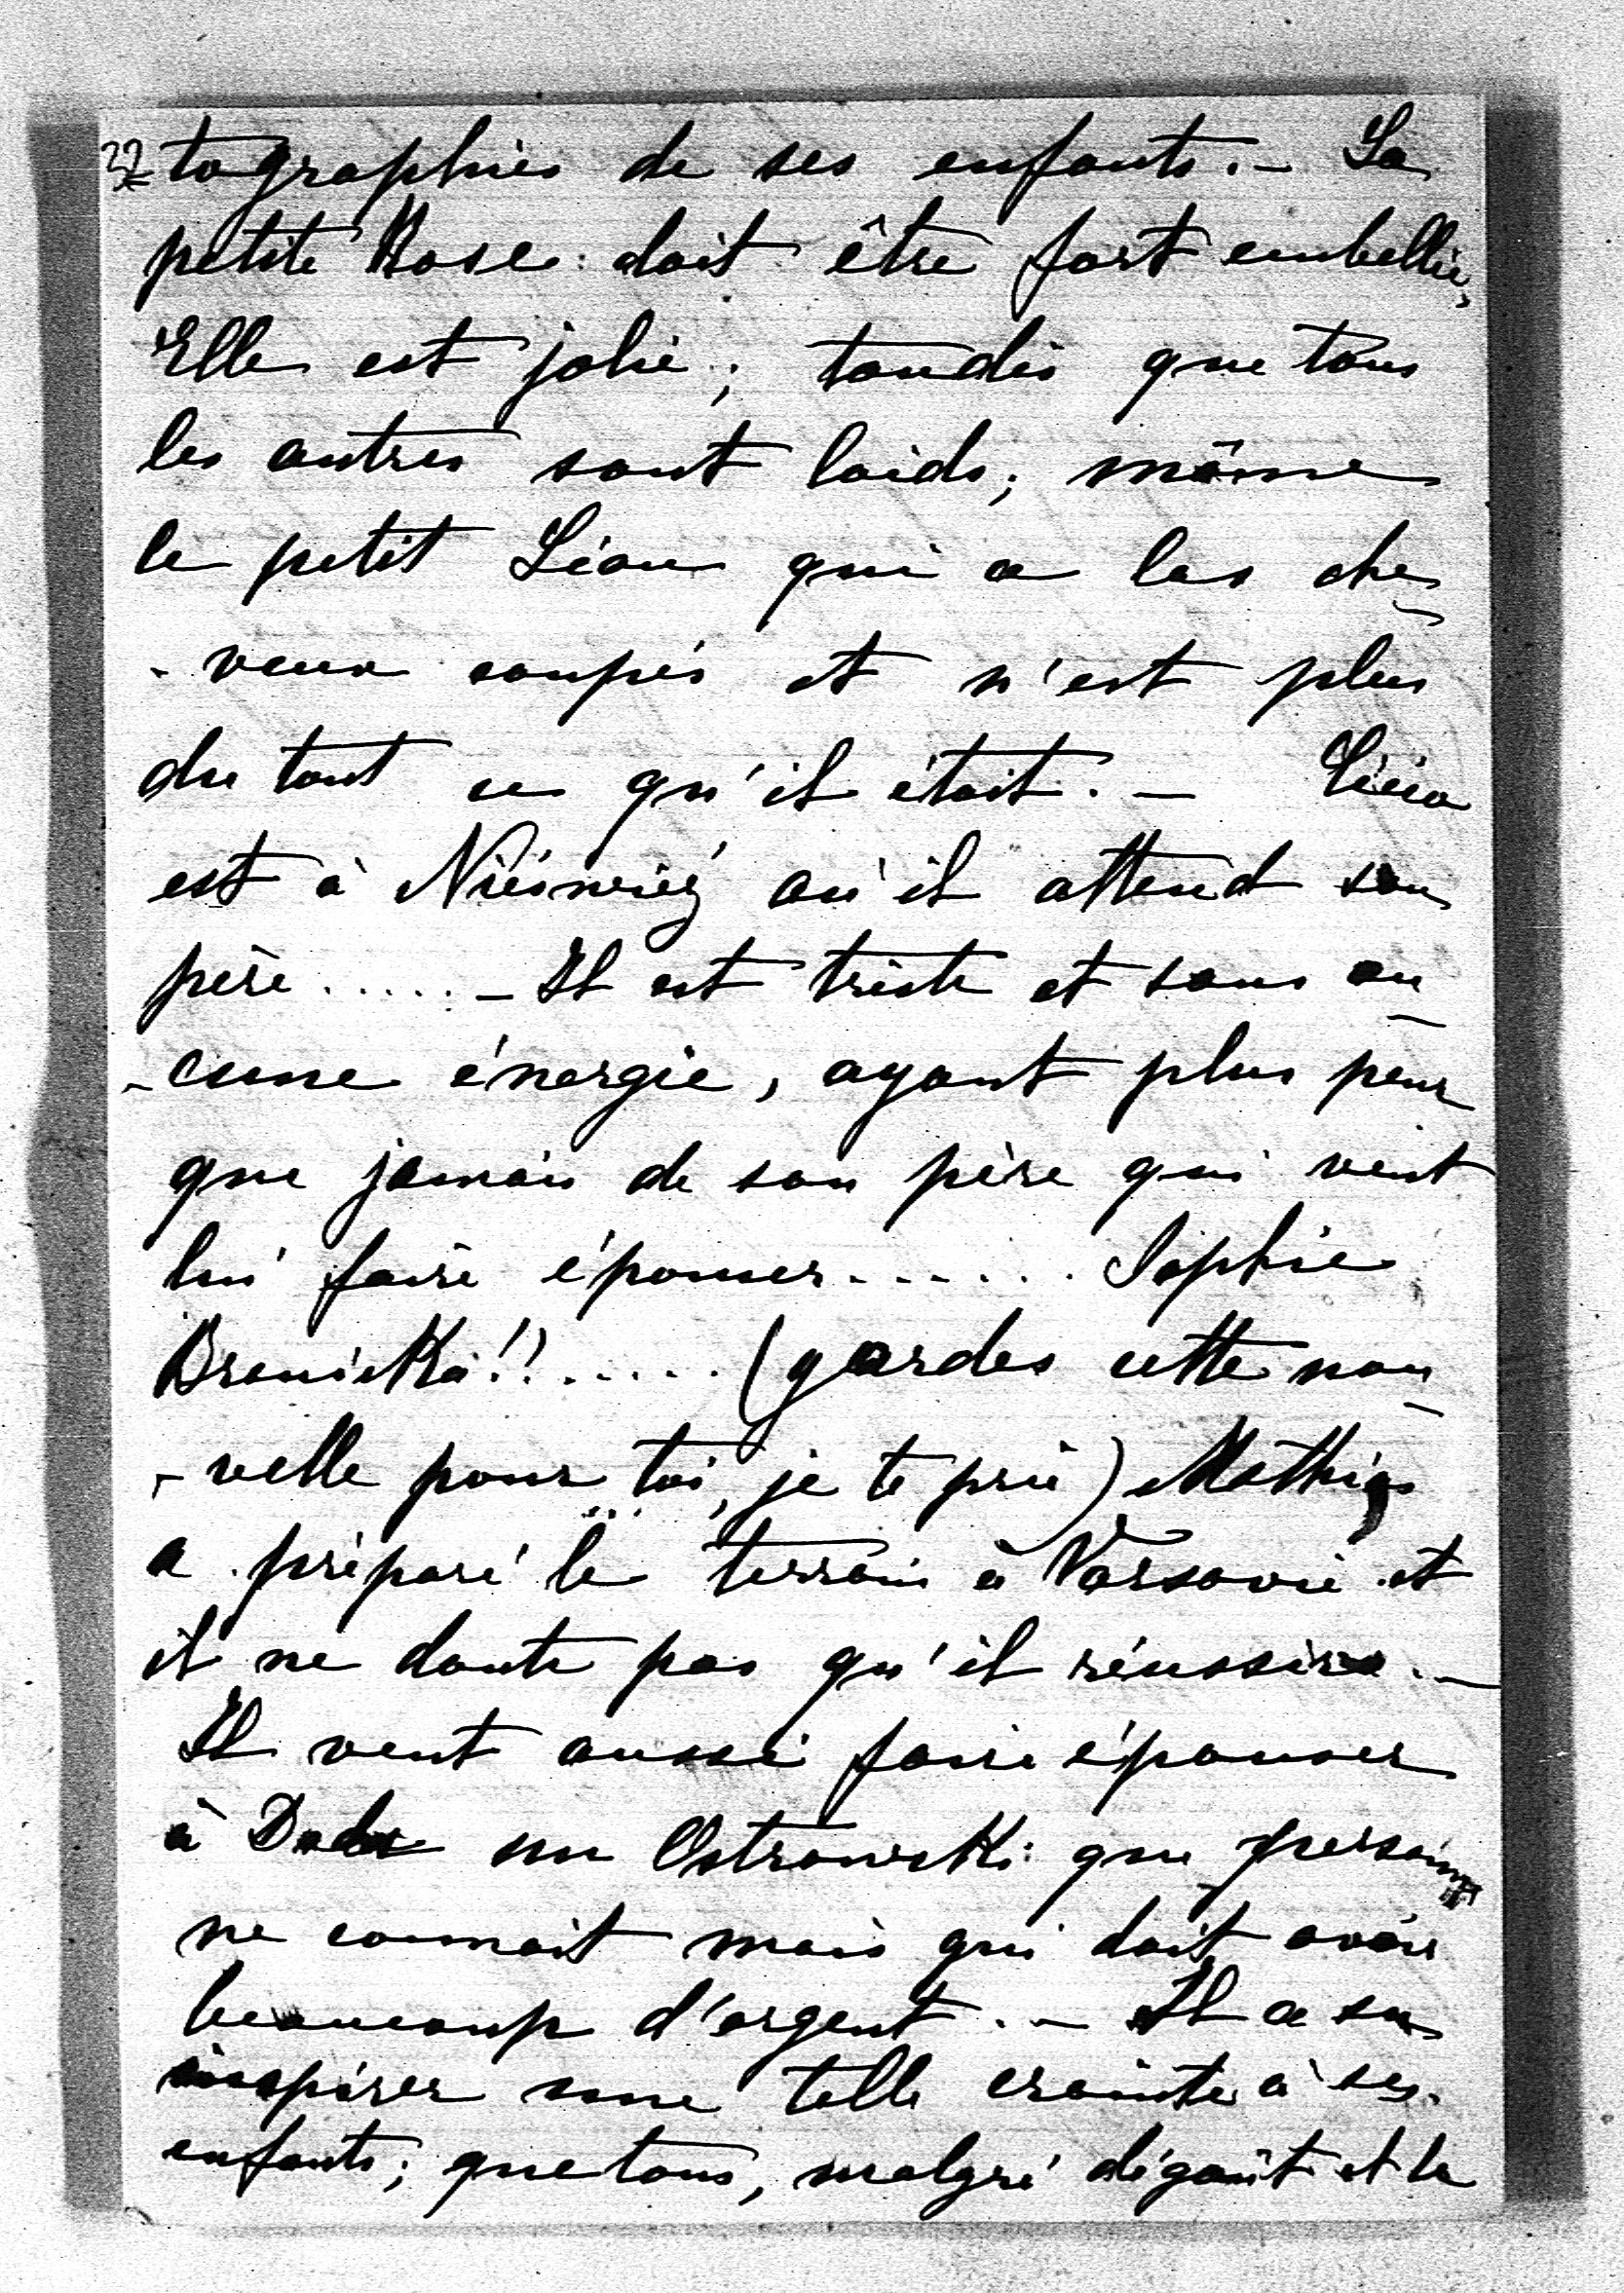 22 tographies de ses enfants. – La
petite Rose doit être fort embellie,
Elle est jolie; tandis que tous
les autres sont laids; même
le petit Léon qui a les che
- veux coupés et n'est plus
du tout ce qu'il était. –
est à Nieśwież où il attend son
père ..... – Il est triste et sans au
- cune énergie, ayant plus peur
que jamais de son père qui veut
lui faire épouser....... Sophie
Branicka!! ...... (gardes cette nou
- velle pour toi, je te prie) Mathias
a préparé le terrain à Varsovie et
il ne doute pas qu'il réussira. –
Il veut aussi faire épouser
à un Ostrowski que person
ne connait mais qui doit avoir
beaucoup d'argent. – Il a su
inspirer une telle crainte à ses
enfants; que tous, malgré dégoût et le